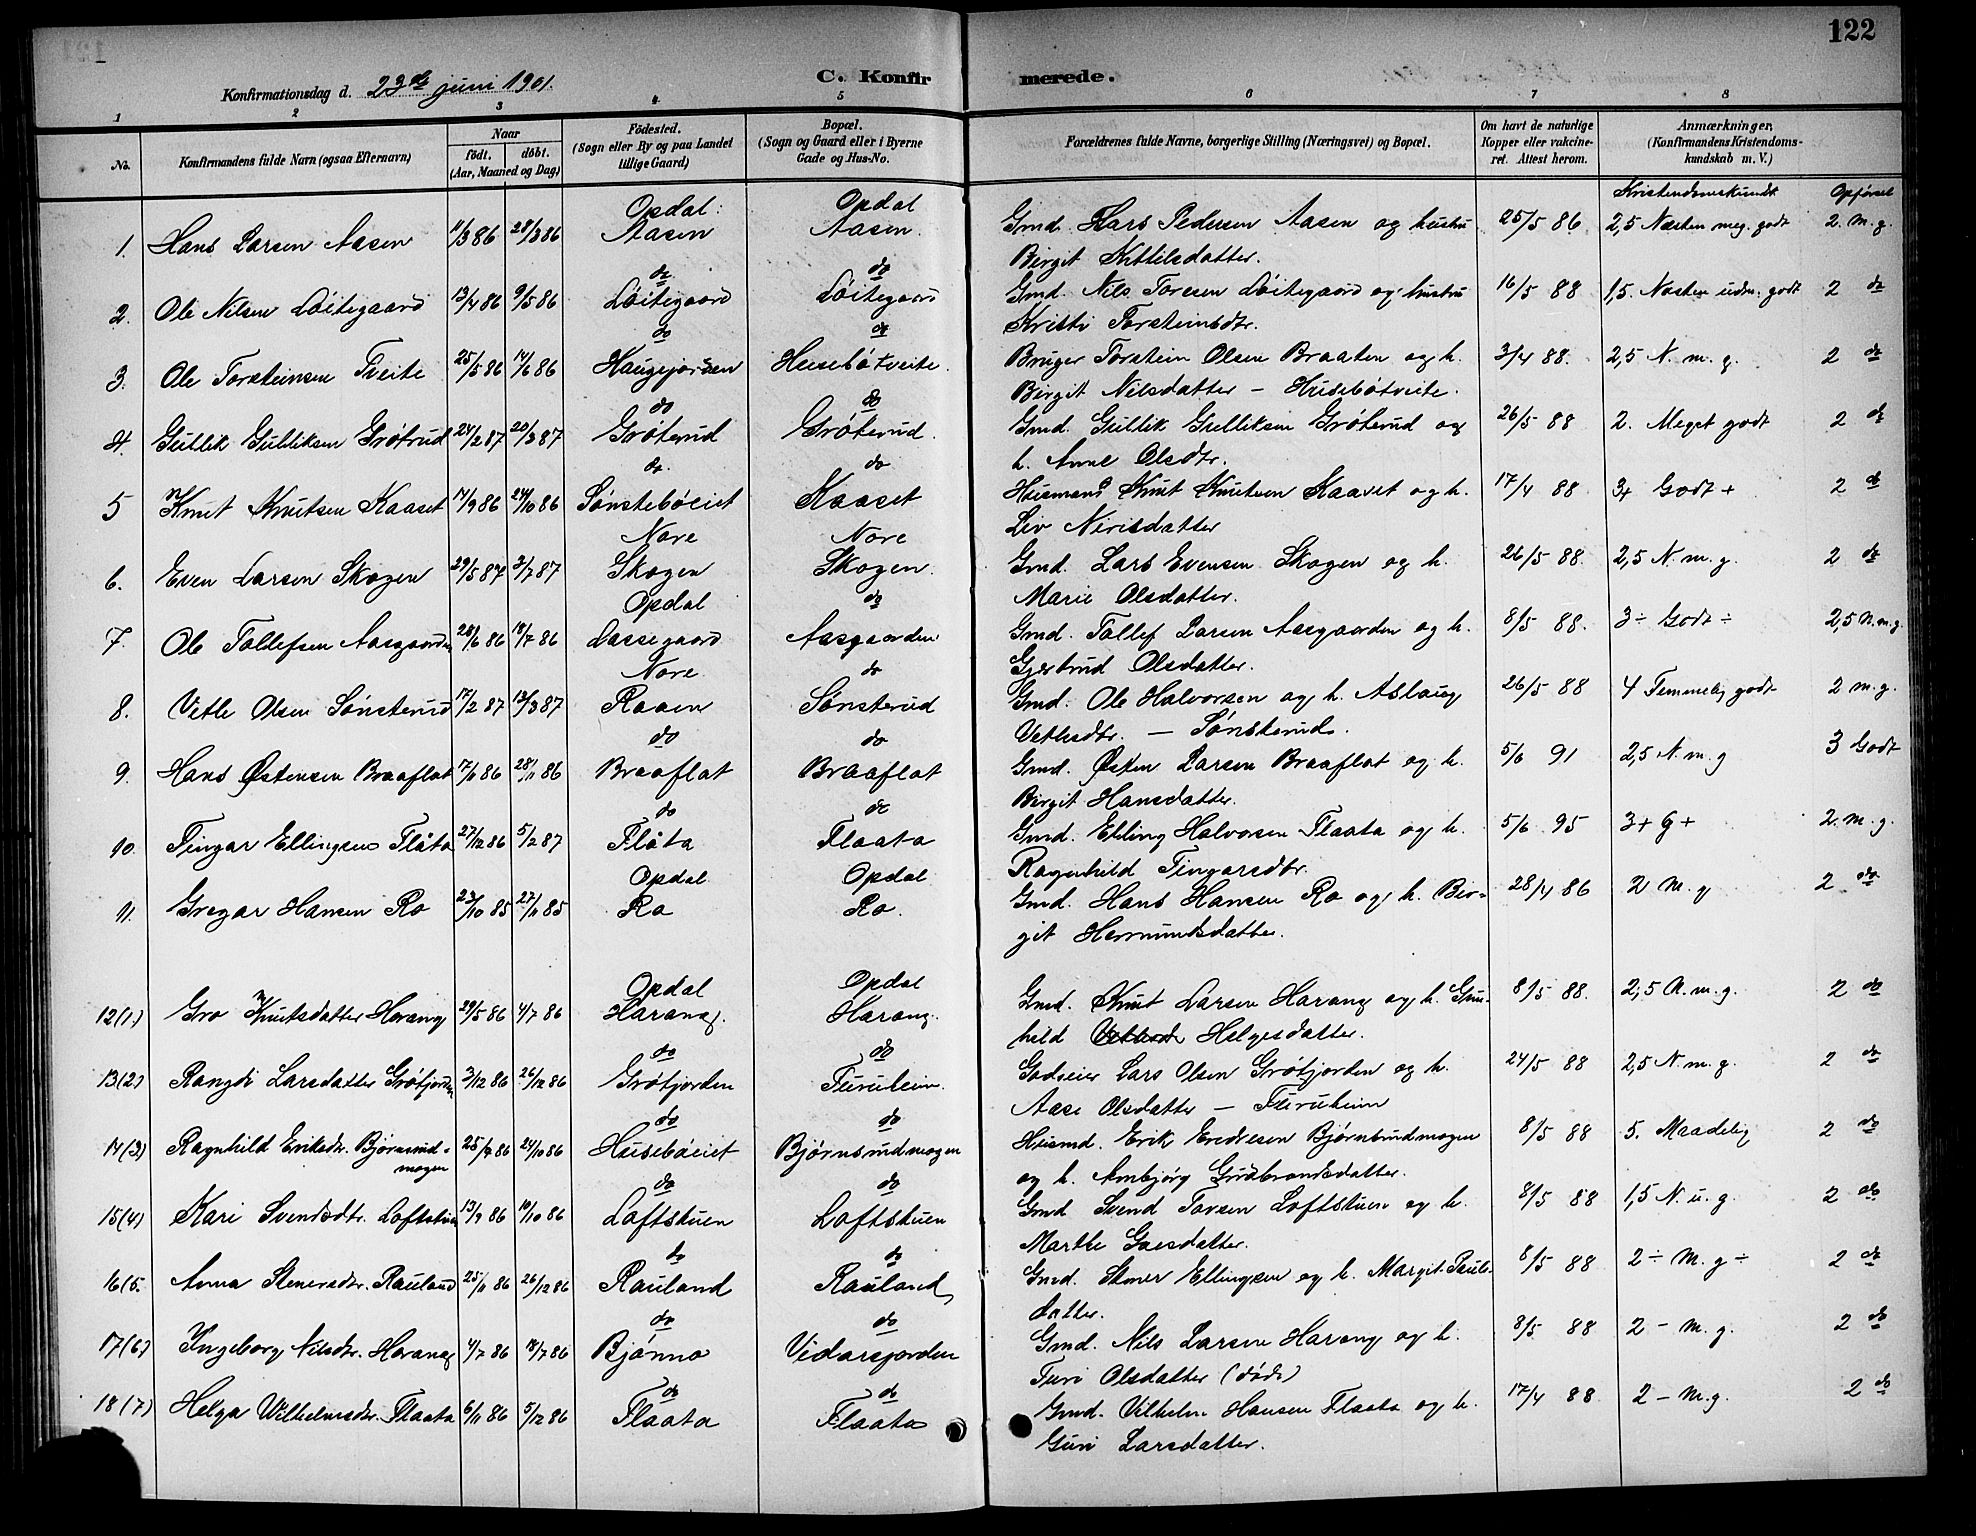 122
C. Konfirmerede.
Konfirmationsdag d. 23de juni 1901.
1 2 3 4 5 6 7 8
No.
Konfirmandens fulde Navn (ogsaa Efternavn)
Naar
födt. döbt.
(Aar, Maaned og Dag)
Födested.
(Sogn eller By og paa Landet
tillige Gaard)
Bopæl.
(Sogn og Gaard eller i Byerne
Gade og Hus-No.
Forældrenes fulde Navne, borgerlige Stilling (Næringsvei) og Bopæl.
Om havt de naturlige
Kopper eller vakcine-
ret. Attest herom.
Anmærkninger.
(Konfirmandens Kristendoms-
kundskab m. V.)
Kristendomskundsk Opførsel
Opdal. Opdal
1. Hans Larsen Aasen 11/3 86 28/3 86 Aasen Aasen. Gmd. Lars Pedersen Aasen og hustru 25/5 86 2,5 Næsten meg. godt 2. m. g.
Birgit Kittilsdatter.
do do
2. Ole Nilsen Löitegaard 13/4 86 9/5 86 Löitegaard Löitegaard Gmd. Nils Toresen Löitegaard og hustru 16/5 88 1,5. Næsten udm. godt 2 do
Kristi Torsteinsdtr.
do do
3. Ole Torsteinsen Tveite 25/5 86 14/6 86 Haugejorden Husebötveite. Bruger Torstein Olsen Braaten og h. 3/4 88. 2,5 N. m. g. 2 do
Birgit Nilsdatter – Husebötveite.
do do
4. Gullik Gulliksen Grötrud 24/2 87 20/3 87 Gröterud Gröterud. Gmd. Gullik Gulliksen Gröterud og 26/5 88 2. Meget godt 2 do
h. Anne Olsdtr.
do. do
5 Knut Knutsen Kaaset 14/9 86 24/10 86 Sönsteböeiet Kaaset Husmand Knut Knutsen Kaaset og h. 17/4 88 3+ Godt + 2 do
Liv Nirisdatter
Nore Nore
6. Even Larsen Skogen 29/5 87 3/7 87 Skogen Skogen. Gmd. Lars Evensen Skogen og h. 26/5 88. 2,5 N. m. g. 2 do
Marie Olsdatter.
Opdal do
7. Ole Tollefsen Aasgaarden 28/6 86 18/7 86 Lassegaard Aasgaarden Gmd. Tollef Larsen Aasgaarden og h. 8/5 88. 3 ÷ Godt ÷ 2,5 N. m. g.
Gjertrud Olsdatter.
Nore. do
8. Vetle Olsen Sönsterud 17/2 87 13/3 87 Raaen Sönsterud Gmd. Ole Halvorsen og h. Aslaug 26/5 88 4 Temmelig godt 2 m. g.
Vetlesdtr. – Sönsterud.
do do
9. Hans Østensen Braaflat 17/11 86 28/11 86 Braaflat Braaflat Gmd. Østen Larsen Braaflat og h. 5/6 91 2,5 N. m. g 3 Godt
Birgit Hansdatter.
do do
10. Fingar Ellingsen Flåta 27/12 86 5/2 87 Flåta Flaata Gmd. Elling Halvorsen Flaata og h. 5/6 95 3+ G + 2. m. g.
Ragnhild Fingarsdtr.
Opdal Opdal
11. Gregar Hansen Ro 23/10 85 22/11 85 Ro Ro. Gmd. Hans Hansen Ro og h. Bir- 28/4 86 2 M. g 2 do
git Hermundsdatter.
Opdal Opdal
12(1.) Gro Knutsdatter Harang 29/5 86 4/7 86 Harang. Harang. Gmd. Knut Larsen Harang og h. Gun- 8/5 88. 2,5 N. m. g. 2 do
hild Helgesdatter.
do do
13(2) Rangdi Larsdatter Gröfjorden 3/12 86 26/12 86 Gröfjorden Furuheim. Godseier Lars Olsen Gröfjorden og h. 24/5 88 2,5 N. m. g. 2 do
Aase Olsdatter – Furuheim
do do
14(3) Ragnhild Eriksdr. Björnsrud- 25/9 86 24/10 86 Huseböeiet Björnsrudmogen Husmd. Erik Endresen Björnsrudmogen 8/5 88 5. Maadelig 2 do
mogen
og h. Ambjörg Gudbrandsdatter.
do do
15(4) Kari Svendsdtr. Loftstuen 13/9 86 10/10 86 Loftstuen Loftstuen Gmd Svend Torsen Loftstuen og h. 8/5 88 1,5 N. u. g. 2 do
Marthe Goesdatter.
do do
16(5. Anna Stenersdtr. Rauland 25/11 86 26/12 86 Rauland Rauland Gmd. Stener Ellingsen og h. Margit Pauls- 8/5 88 2 ÷ M. g ÷ 2 do
datter.
do do
17(6.) Ingeborg Nilsdtr. Harang 4/7 86 18/7 86 Björnno Vidarsjorden Gmd. Nils Larsen Harang og h. 8/5 88 2 – m. g. 2 do
Turi Olsdatter (död)
do do
18(7) Helga Wilhelmsdtr. Flaata 6/11 86 5/12 86 Flaata Flaata Gmd. Vilhelm Hansen Flaata og h. 17/4 88. 2 – m. g. 2 do
Guri Larsdatter.